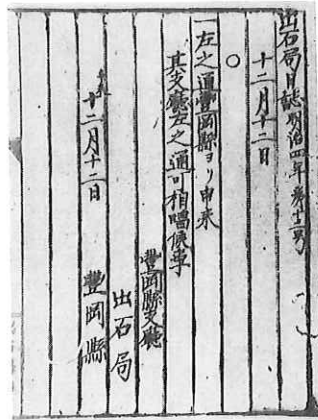 出石局日誌明治四年第十二号
十二月十二日
○
一左之通豐岡縣ヨリ申来
其支廳左之通可相唱候事
豐岡縣支廳
出石局
十二月十二日
豐岡縣